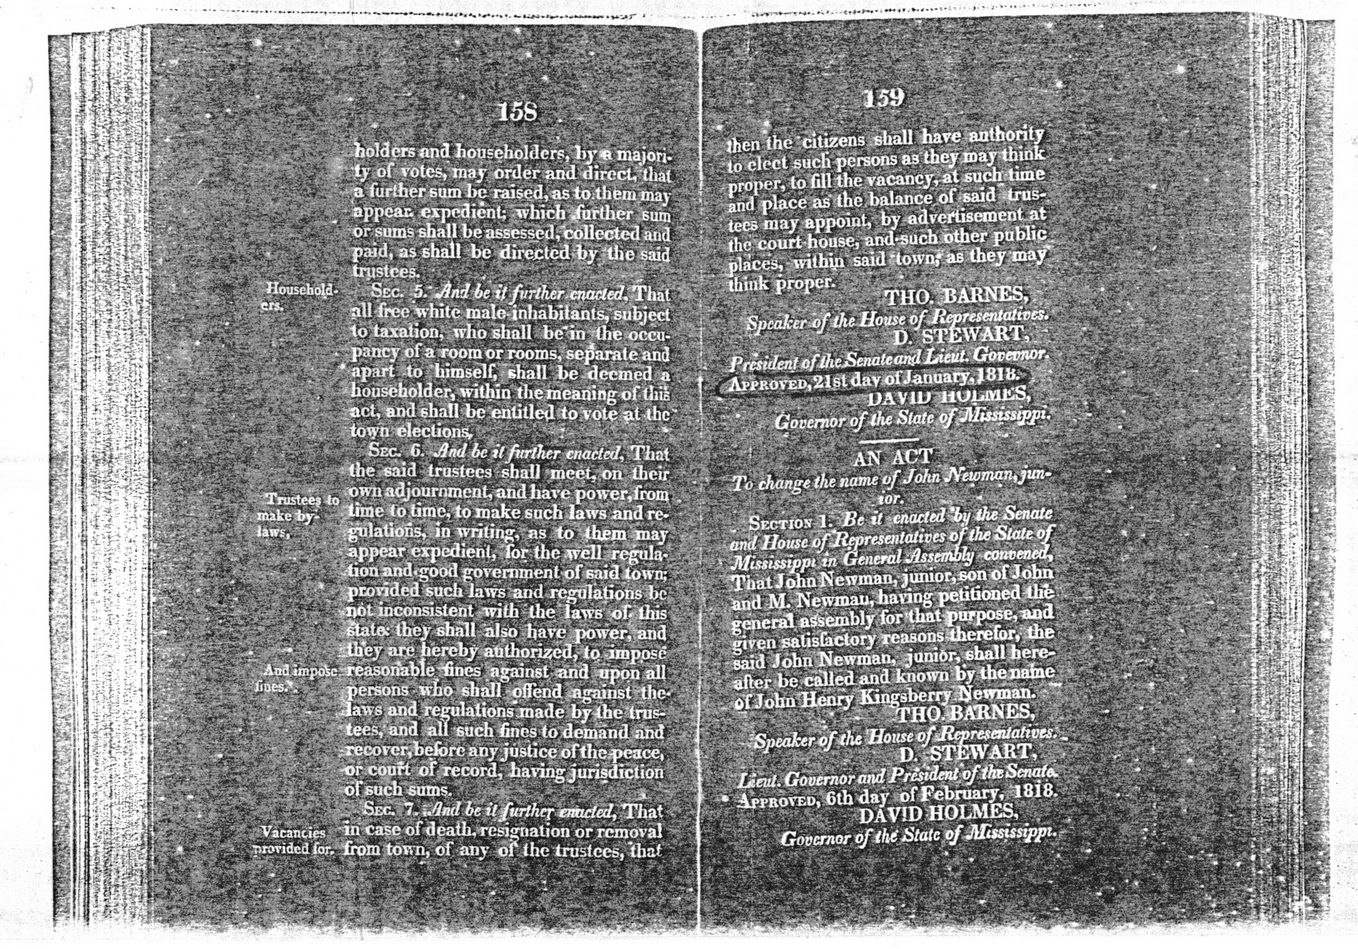 158
holders and householders, by a majori-
ty of votes, may order and direct, that
a further sum be raised, as to them may
appear expedient; which further sum
or sums shall be assessed, collected and
paid, as shall be directed by the said
trustees.
Household-
ers.
SEC. 5. And be it further enacted, That
all free white male inhabitants, subject
to taxation, who shall be in the occu-
pancy of a room or rooms, separate and
apart to himself, shall be deemed a
householder, within the meaning of this
act, and shall be entitled to vote at the
town elections,
SEC. 6. And be it further enacted, That
the said trustees shall meet, on their
Trustees to
make by-
laws,
own adjournment, and have power, from
time to time, to make such laws and re-
gulations, in writing, as to them may
appear expedient, for the well regula-
tion and good government of said town;
provided such laws and regulations be
not inconsistent with the laws of this
state: they shall also have power, and
they are hereby authorized, to impose
And impose
fines.
reasonable fines against and upon all
persons who shall offend against the
laws and regulations made by the trus-
tees, and all such fines to demand and
recover, before any justice of the peace,
or court of record, having jurisdiction
of such sums.
SEC. 7. And be it further enacted, That
Vacancies
provided for.
in case of death, resignation or removal
from town, of any of the trustees, that
159
then the citizens shall have authority
to elect such persons as they may think
proper, to fill the vacancy, at such time
and place as the balance of said trus-
tees may appoint, by advertisement at
the court house, and such other public
places, within said town, as they may
think proper.
THO. BARNES,
Speaker of the House of Representatives.
D. STEWART,
President of the Senate and Lieut. Governor.
APPROVED, 21st day of January, 1818.
DAVID HOLMES,
Governor of the State of Mississippi.
AN ACT
To change the name of John Newman, jun-
ior.
SECTION 1. Be it enacted by the Senate
and House of Representatives of the State of
Mississippi in General Assembly convened,
That John Newman, junior, son of John
and M. Newman, having petitioned the
general assembly for that purpose, and
given satisfactory reasons therefor, the
said John Newman, junior, shall here-
after be called and known by the name
of John Henry Kingsberry Newman.
THO. BARNES,
Speaker of the House of Representatives.
D. STEWART,
Lieut. Governor and President of the Senate.
APPROVED, 6th day of February, 1818.
DAVID HOLMES,
Governor of the State of Mississippi.